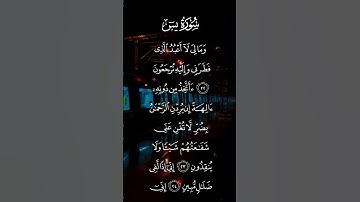 سُورَةُ يسٓ
وَمَا لِيَ لَآ أَعۡبُدُ ٱلَّذِي
فَطَرَنِي وَإِلَيۡهِ تُرۡجَعُونَ
٢٢ ءَأَتَّخِذُ مِن دُونِهِۦٓ
ءَالِهَةً إِن يُرِدۡنِ ٱلرَّحۡمَٰنُ
بِضُرّٖ لَّا تُغۡنِ عَنِّي
شَفَٰعَتُهُمۡ شَيۡـٔٗا وَلَا
يُنقِذُونِ ٢٣ إِنِّيٓ إِذٗا لَّفِي
ضَلَٰلٖ مُّبِينٍ ٢٤ إِنِّيٓ